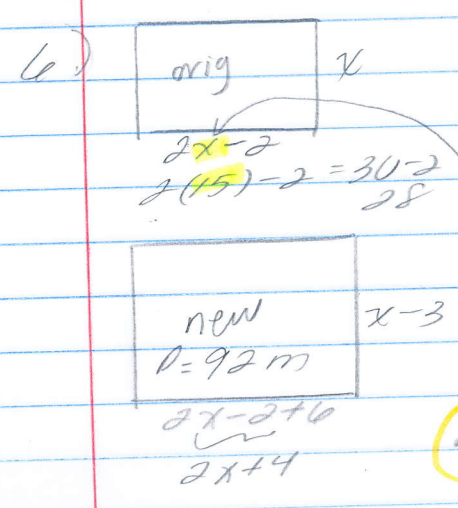 6.)
orig
x
2x-2
2(15)-2 = 30-2
28
new
x-3
P=92 m
2x-2+6
2x+4